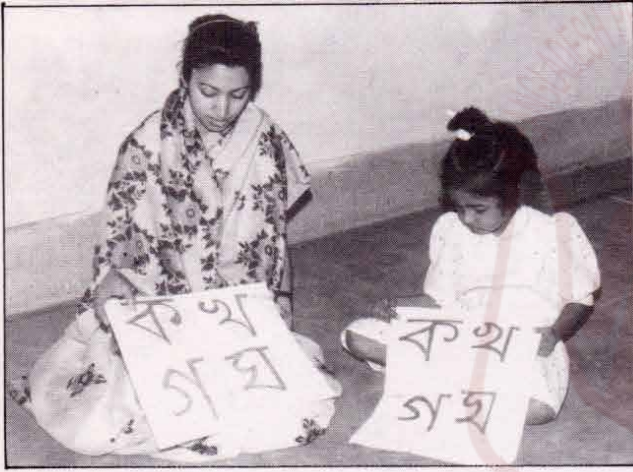 ক খ
গ ঘ
ক খ
গ ঘ